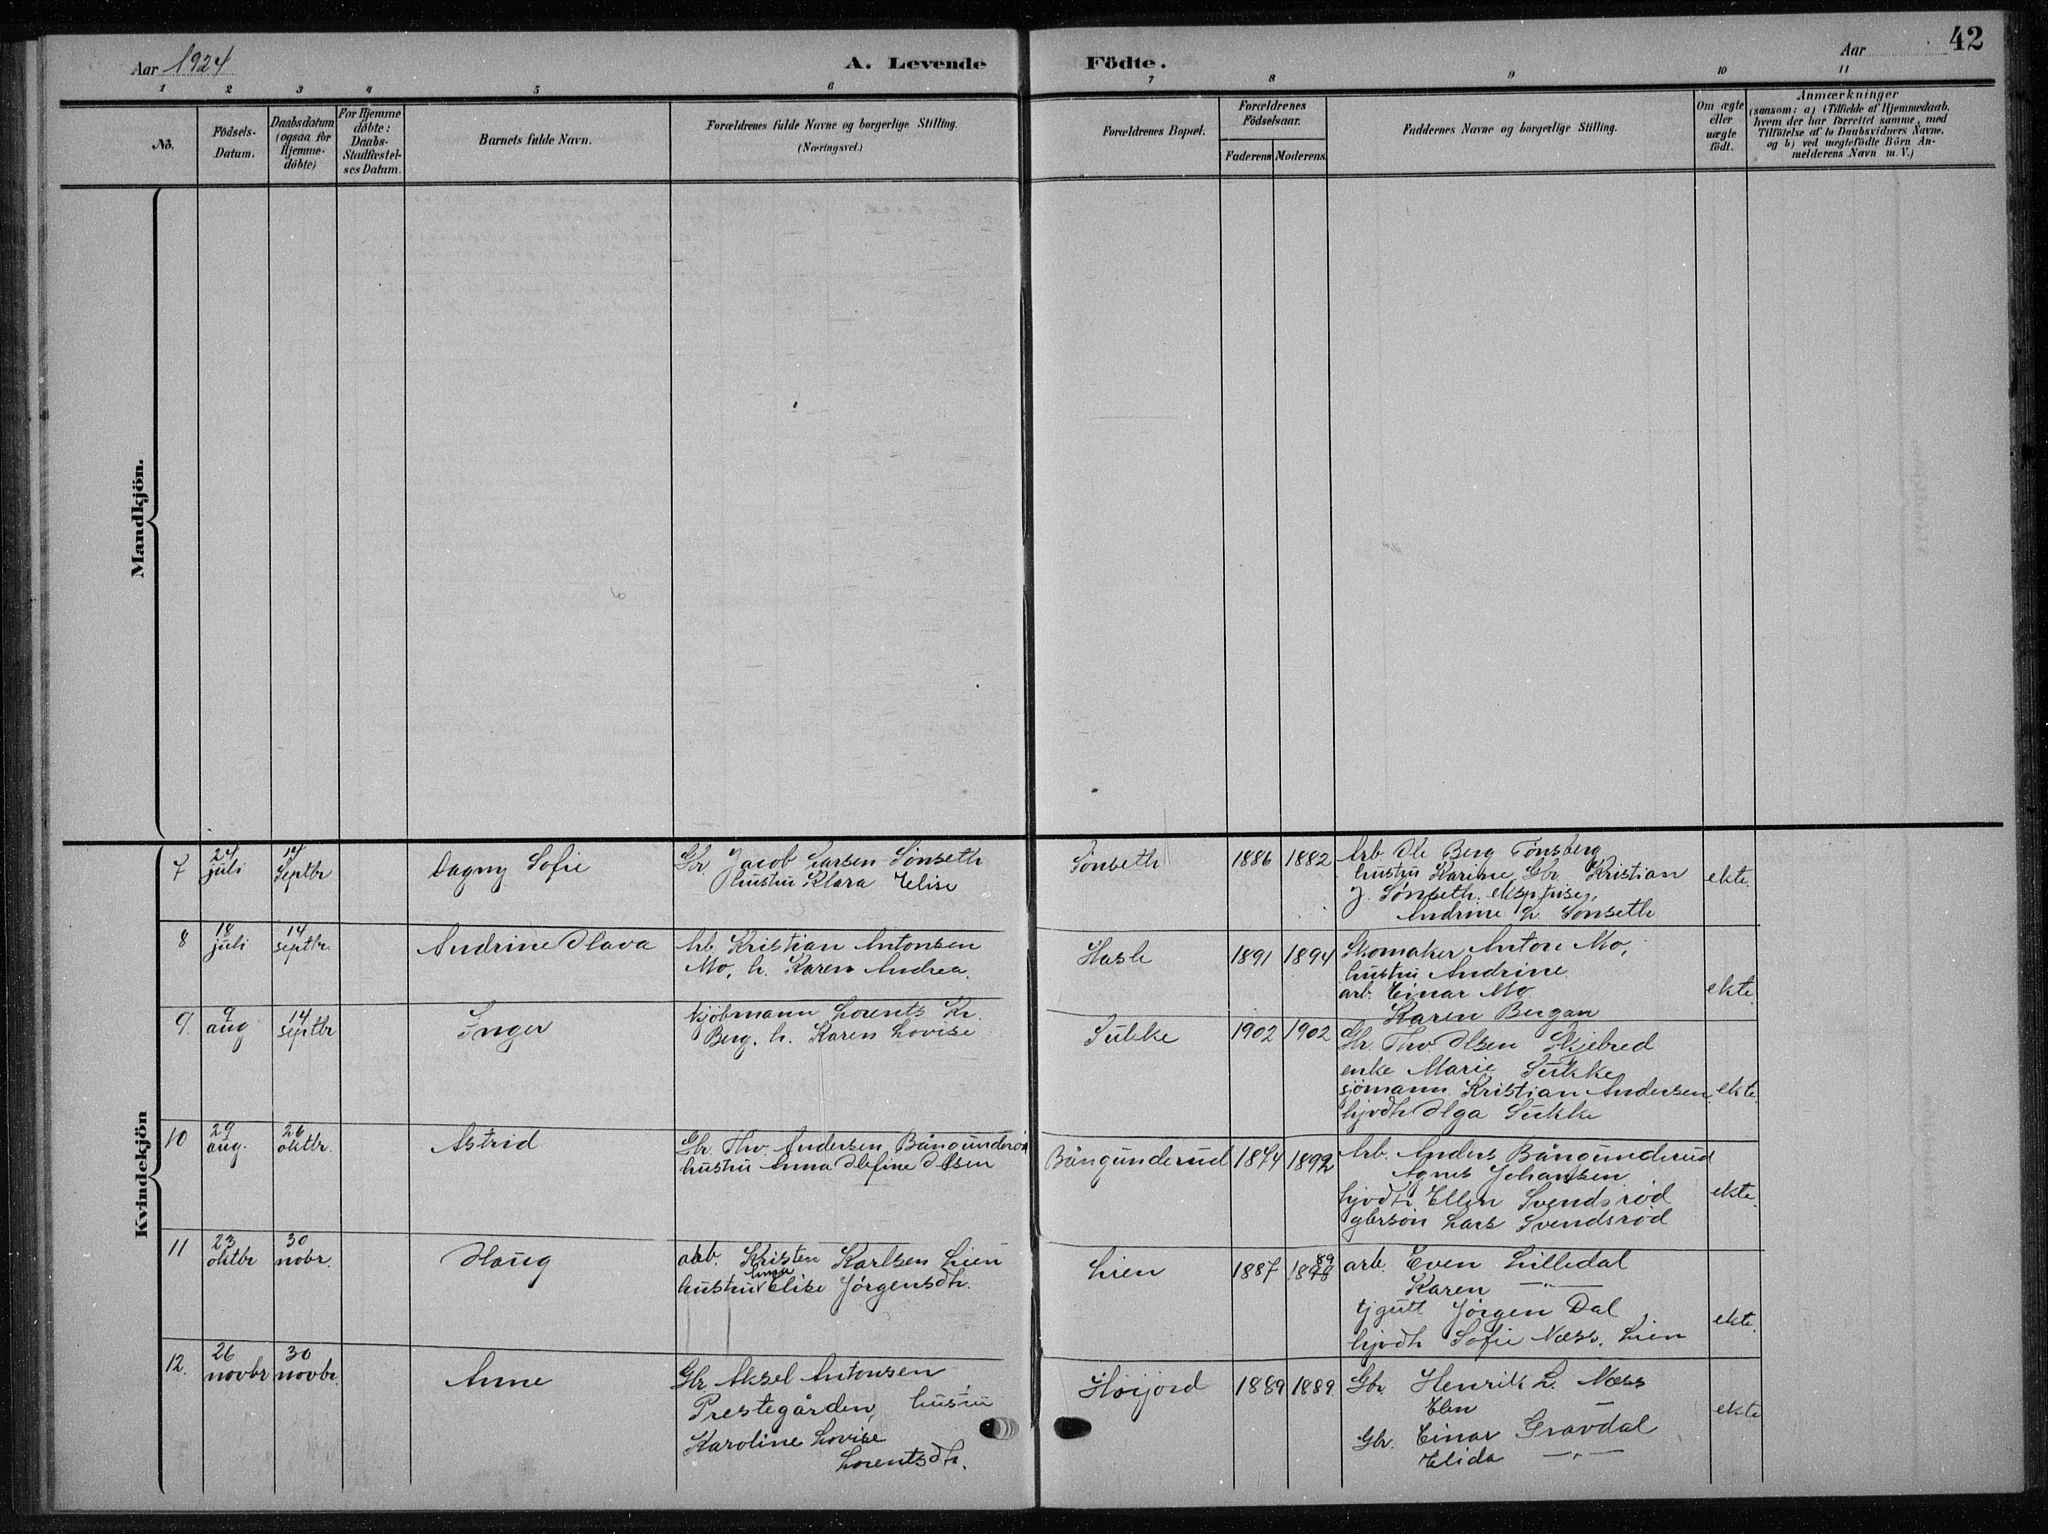 Aar 1924
A. Levende
Födte.
Aar
42
1 2 3 4 5 6 7 8 9 10 11
No.
Födsels-
Datum.
Daabsdatum
(ogsaa for
Hjemme-
döbte)
For Hjemme
döbte:
Daabs-
Stadfæstel-
ses Datum.
Barnets fulde Navn.
Forældrenes fulde Navne og borgerlige Stilling.
(Næringsvei.)
Forældrenes Bopæl.
Forældrenes
Födselsaar.
Faderens Moderens.
Faddernes Navne og borgerlige Stilling.
Om ægte
eller
uægte
födt.
Anmærkninger
(saasom: a) i Tilfælde af Hjemmedaab.
hvem der har forrettet samme, med
Tilföielse af to Daabsvidners Navne.
og b) ved uægtefödte Börn An-
melderens Navn m. V.)
Mandkjön.
Kvindekjön
7
24
juli
14
Septbr
Dagny Sofie
Gbr. Jacob Larsen Sönseth
hustru Klara Elise
Sönseth
1886 1882
Arb. Ole Berg Tønsberg
hustru Karine Gbr. Kristian
J. Sønseth.
Andrine L. Sönseth
ekte.
8
18
juli
14
septbr.
Andrine Olava
Arb. Kristian Antonsen
Mo, h. Karen Andrea.
Hasle
1891 1894
Skomaker Anton Mo,
hustru Andrine.
arb. Einar Mo
Karen Bergan
ekte.
9.
9
aug
14
septbr
Inger
kjöbmann Lorents Kr.
Berg. h. Karen Lovise
Sukke
1902 1902
Gbr. Thv Olsen Skjelbred
enke Marie Sukke
sjömann Kristian Andersen
hjvdh Olga Sukke
ekte.
10
29
aug.
26
oktbr.
Astrid
Gbr. Thv. Andersen Bångunderöd
hustru Anna Olefine Olsen
Bångunderud
1874 1892
Arb. Anders Bångunderud
Agnes Johansen
hjvdh Ellen Svendsröd
gbrsön Lars Svendsröd
ekte.
11
23
oktbr
30
nobr.
Haug
arb. Kristen Karlsen Lien
Anna
hustru Elise Jørgensdh.
Lien
1887
89
1878
arb. Even Lilledal
Karen —"—
tjgutt Jörgen Dal
hjvdh Sofie Næss, Lien
ekte.
12.
26
novbr
30
novbr.
Anne
Gbr Aksel Antonsen
Prestegården, hustru
Karoline Lovise
Lorentsdh.
Høijord
1889 1889.
Gbr Henrik L. Næss
Elen —
Gbr. Einar Gravdal
Elida —"—
ekte